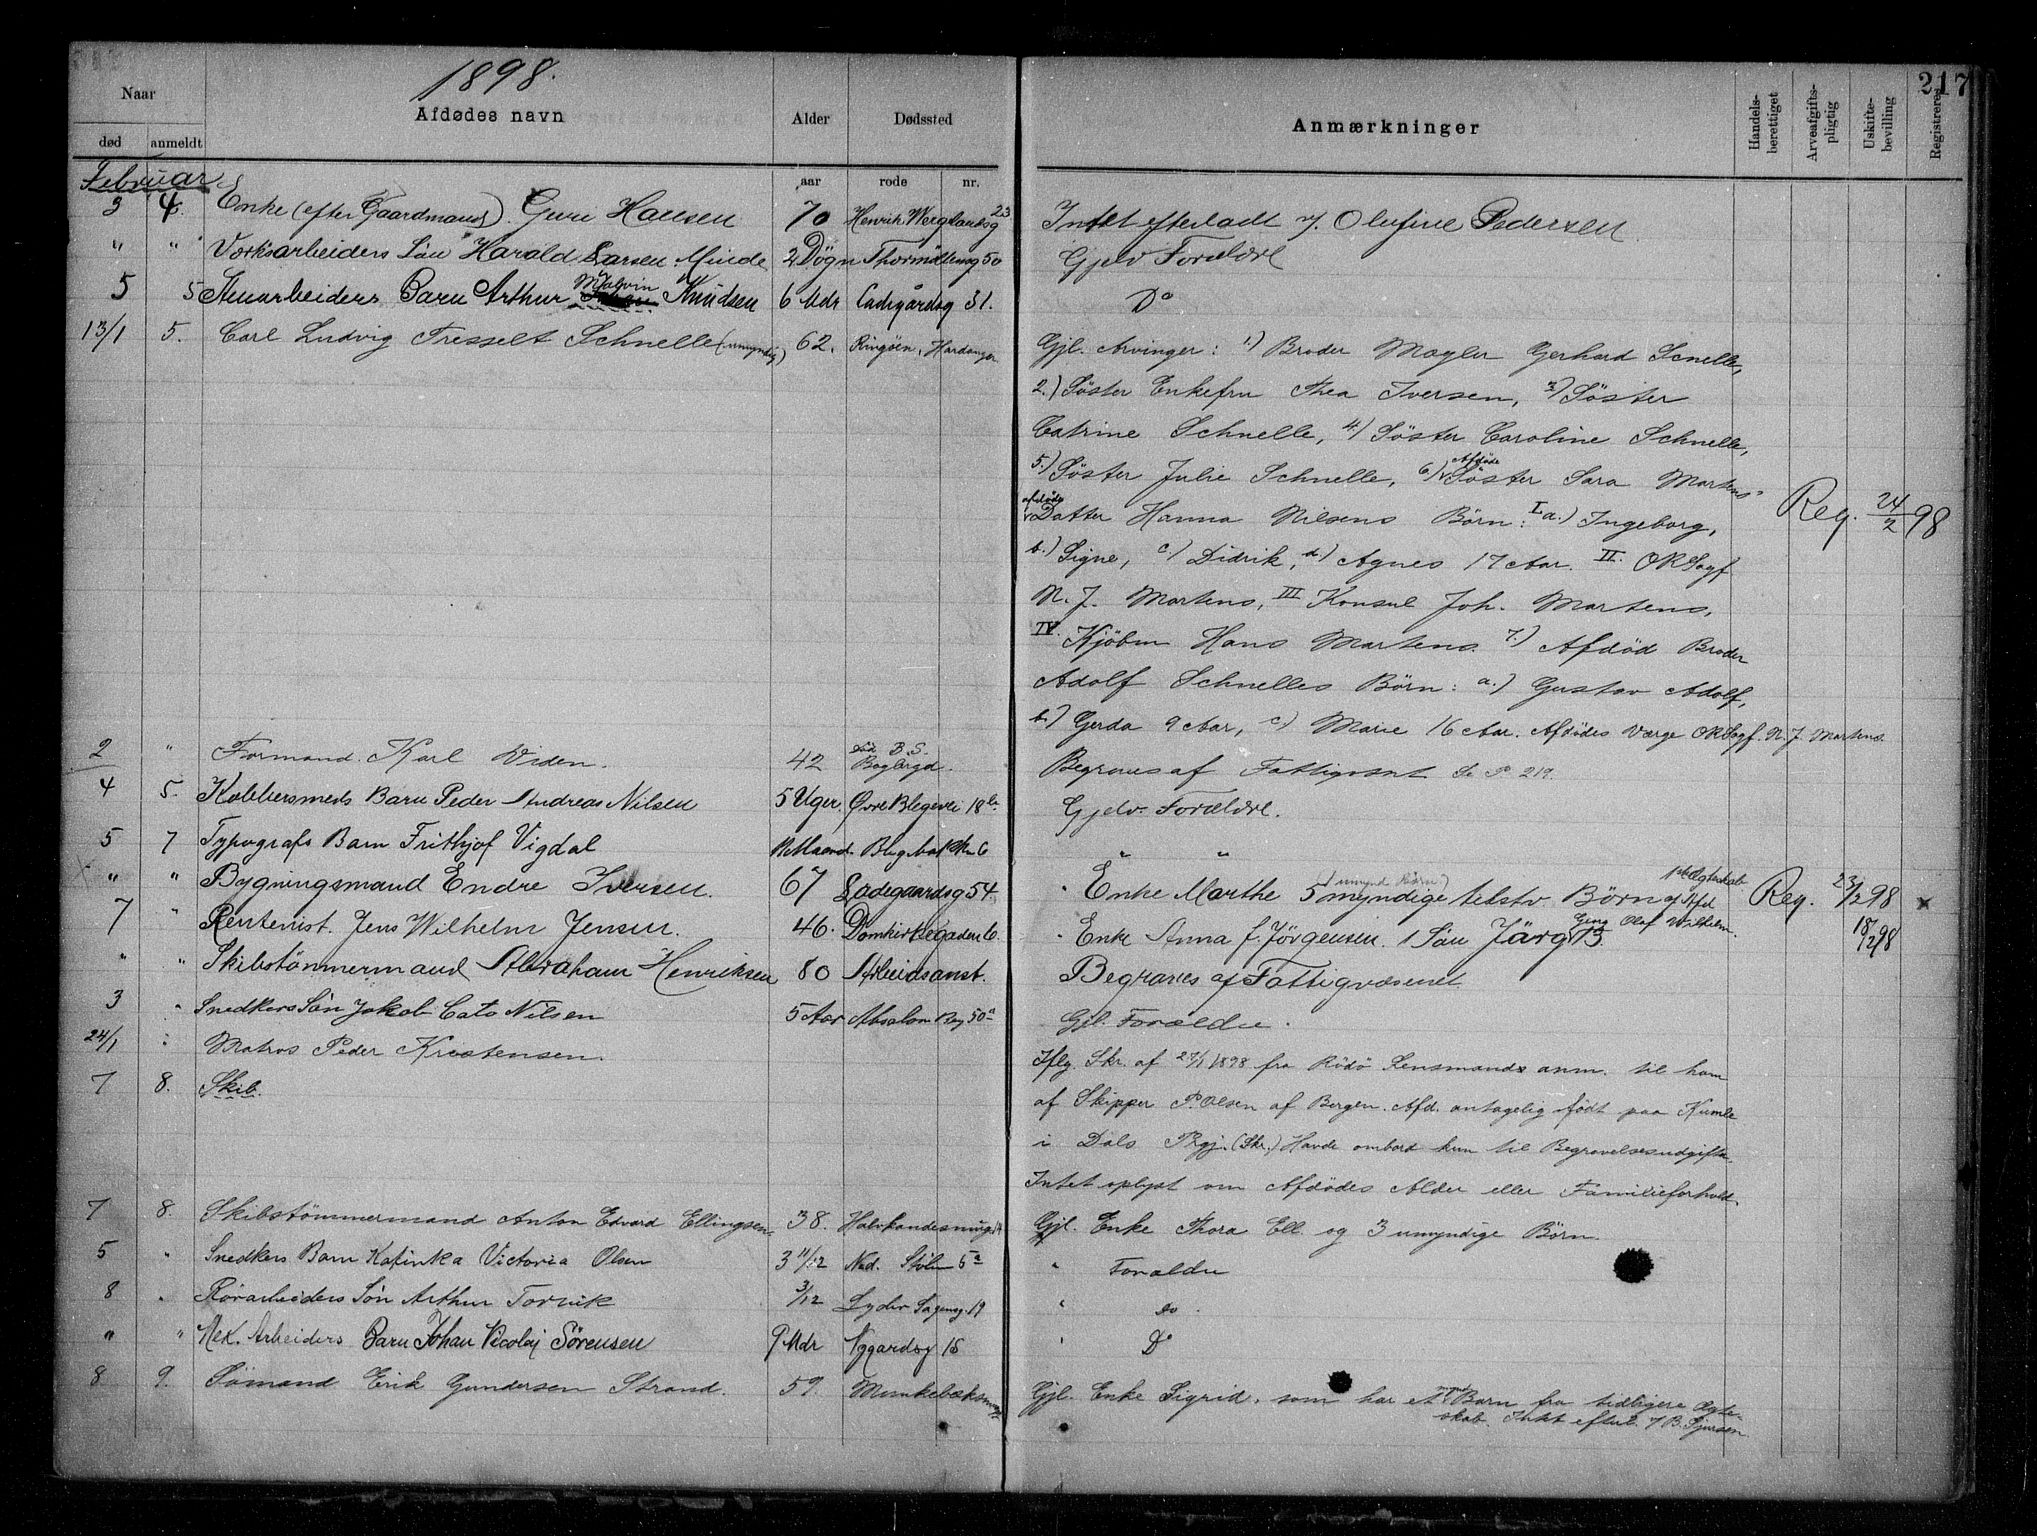 1898.
217
Naar
Afdødes navn
Alder
Dødssted
Anmærkninger
Handels-berettiget
Arveafgifts-pligtig
Uskifte-bevilling
Registreret
død anmeldt
aar rode nr.
Februar
3 4. Enke (efter Gaardmand) Guri Hansen 70 Henrik Wergelandsg 23 Intet efterladt v/ Olufine Pedersen
" " Værksarbeiders Søn Harald Larsen Minde 2 Døgn Thormöhlensg 50 Gjelv Forældre
5 5 Arbeiders Barn Arthur Malvin Knudsen 6 Mdr Ladegårdsg 31. Do
13/1 5. Carl Ludvig Tresselt Schnelle (umyndig) 62. Ringøen, Hardanger
Gjl. Arvinger: 1) Broder Mægler Gerhard Scnelle,
2.) Søster Enkefru Thea Iversen, 3) Søster
Catrine Schnelle, 4) Søster Caroline Schnelle,
5.) Søster Julie Schnelle, 6) Afdøde Søster Sara Martens'
afdøde Datter Hanna Nilsens Børn: I a.) Ingeborg,
Reg. 24/2 98
b.) Signe, c) Didrik, d.) Agnes 17 Aar. II. ORSagf
N. J. Martens, III Konsul Joh. Martens,
IV. Kjøbm Hans Martens 7.) Afdød Broder
Adolf Schnelles Børn: a.) Gustav Adolf,
b.) Gerda 9 Aar, c.) Marie 16 Aar. Afdødes Værge ORSagf. N. J. Martens.
2 " Formand. Karl Viden. 42 B. S. Begraves af Fattigvsnt Se P. 219.
4 5. Kobbersmeds Barn Peder Andreas Nilsen 5 Uger. Øvre Blegevei 18b Gjelv. Forældre.
5 7 Typografs Barn Frithjof Vigdal " "
" " Bygningsmand Endre Iversen. 67 Ladegaardsg 54. " Enke Marthe 5 myndige (umynd Børn) Børn Reg. 23/2 98
7 " Rentenist. Jens Wilhelm Jensen. 46. Domkirkegaden 6. " Enke Anna f. Jørgensen. 1 Søn Olaf Wilhelm. 18/2 98
" " Skibstömmermand Abraham Henriksen 80 Arbeidsanst. Begraves af Fattigvæsenet
3 " Snedkers Søn Jakob Cato Nilsen 5 Aar Absalon Bey 50a Gjl. Forældre.
24/1 " Matros Peder Kristensen. Iflg. Skr. af 27/1 1898 fra Rödö Lensmands anm. til ham
7 8. Skib.
af Skipper P. Olsen af Bergen. Afd. antagelig født paa Kumle
i Dals Prgj. (Skr.) Havde ombord kun til Begravelsesudgifter.
Intet oplyst om Afdødes Alder eller Familieforhold.
7 8. Skibstömmermand Anton Edvard Ellingsen 38. Gjl. Enke Thora Ell. og 3 umyndige Børn.
5 " Snedkers Barn Katinka Victoria Olsen 3 11/12 Ned. Stölen 5a " Forældre
8 " Rörarbeiders Søn Arthur Torvik 3/12 Lyder Sagensg. 19 " do.
" " Mek. Arbeiders Barn Johan Nicolaj Sörensen 9 Mdr Nygaardsg 16 " Do
8 9. Sömand Erik Gundersen Strand. 59. Munkebæksmug Gjl. Enke Sigrid, som har et Barn fra tidligere Ægte-
skab. Intet efterl. v/ B. Sjursen